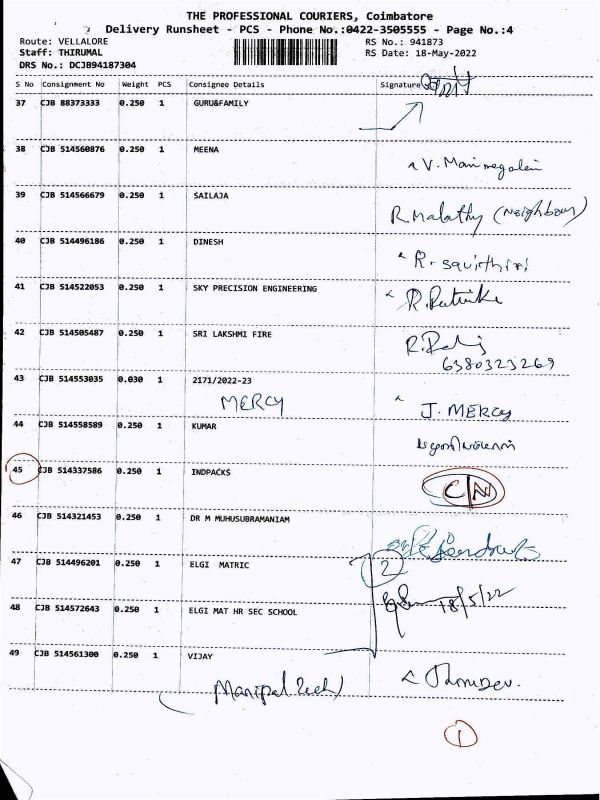 THE PROFESSIONAL COURIERS, Coimbatore
Delivery Runsheet - PCS - Phone No.:0422-3505555 - Page No.:4
Route: VELLALORE RS No.: 941873
Staff: THIRUMAL RS Date: 18-May-2022
DRS No.: DCJB94187304
S No Consignment No Weight PCS Consignee Details Signature
37 CJB 88373333 0.250 1 GURU&FAMILY
38 CJB 514560876 0.250 1 MEENA
V. Manimegalai
39 CJB 514566679 0.250 1 SAILAJA
R. Malathy (Neighbour)
40 CJB 514496186 0.250 1 DINESH
41 CJB 514522053 0.250 1 SKY PRECISION ENGINEERING
42 CJB 514505487 0.250 1 SRI LAKSHMI FIRE
6380323269
43 CJB 514553035 0.030 1 2171/2022-23
MERCY J. MERCY
44 CJB 514558589 0.250 1 KUMAR
45 CJB 514337586 0.250 1 INDPACKS
CN
46 CJB 514321453 0.250 1 DR M MUHUSUBRAMANIAM
47 CJB 514496201 0.250 1 ELGI MATRIC
2
48 CJB 514572643 0.250 1 ELGI MAT HR SEC SCHOOL
18/5/22
49 CJB 514561300 0.250 1 VIJAY
1